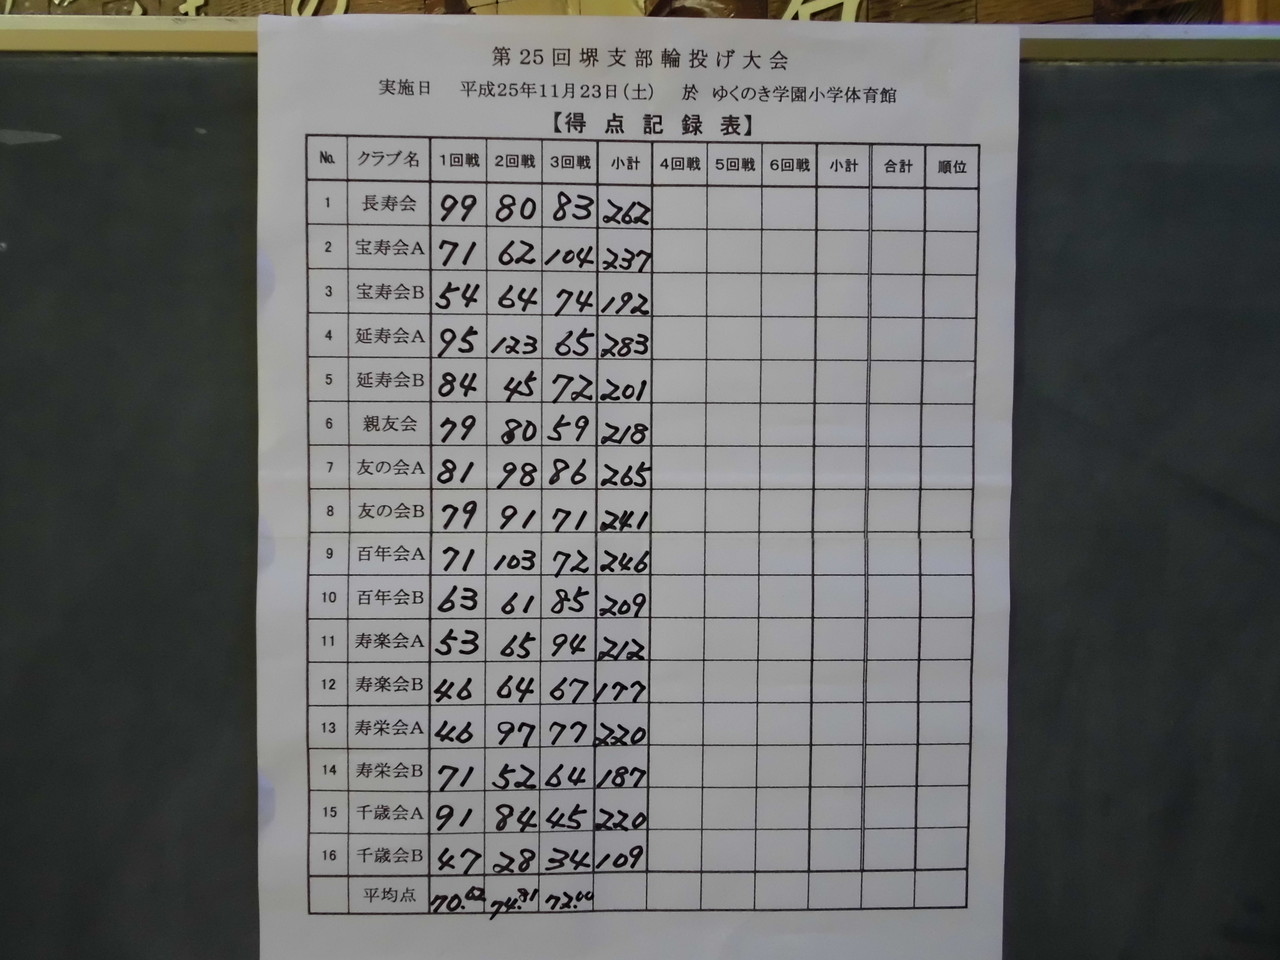 第25回堺支部輪投げ大会
実施日 平成25年11月23日(土) 於 ゆくのき学園小学体育館
【得点記録表】
No. クラブ名 1回戦 2回戦 3回戦 小計 4回戦 5回戦 6回戦 小計 合計 順位
1 長寿会 99 80 83 262
2 宝寿会A 71 62 104 237
3 宝寿会B 54 64 74 192
4 延寿会A 95 123 65 283
5 延寿会B 84 45 72 201
6 親友会 79 80 59 218
7 友の会A 81 98 86 265
8 友の会B 79 91 71 241
9 百年会A 71 103 72 246
10 百年会B 63 61 85 209
11 寿楽会A 53 65 94 212
12 寿楽会B 46 64 67 177
13 寿栄会A 46 97 77 220
14 寿栄会B 71 52 64 187
15 千歳会A 91 84 45 220
16 千歳会B 47 28 34 109
平均点 70.62 74.81 72.00